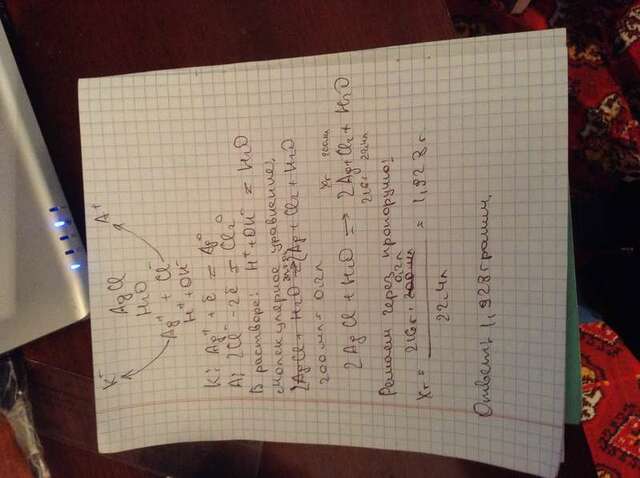 K⁻ AgCl A⁺
H₂O
Ag⁺ + Cl⁻
H⁺ + OH⁻
K: Ag⁺ + ē = Ag⁰
A: 2Cl⁻ - 2ē = Cl₂⁰
В растворе: H⁺ + OH⁻ = H₂O
Молекулярное уравнение:
2AgCl + H₂O = 2Ag + Cl₂ + H₂O
200 мл = 0,2 л
xг 200мл
2AgCl + H₂O → 2Ag + Cl₂ + H₂O
216г 22,4л
Решаем через пропорцию:
0,2л
xг = 216г · 200мл = 1,928г
22,4л
Ответ: 1,928 грамм.